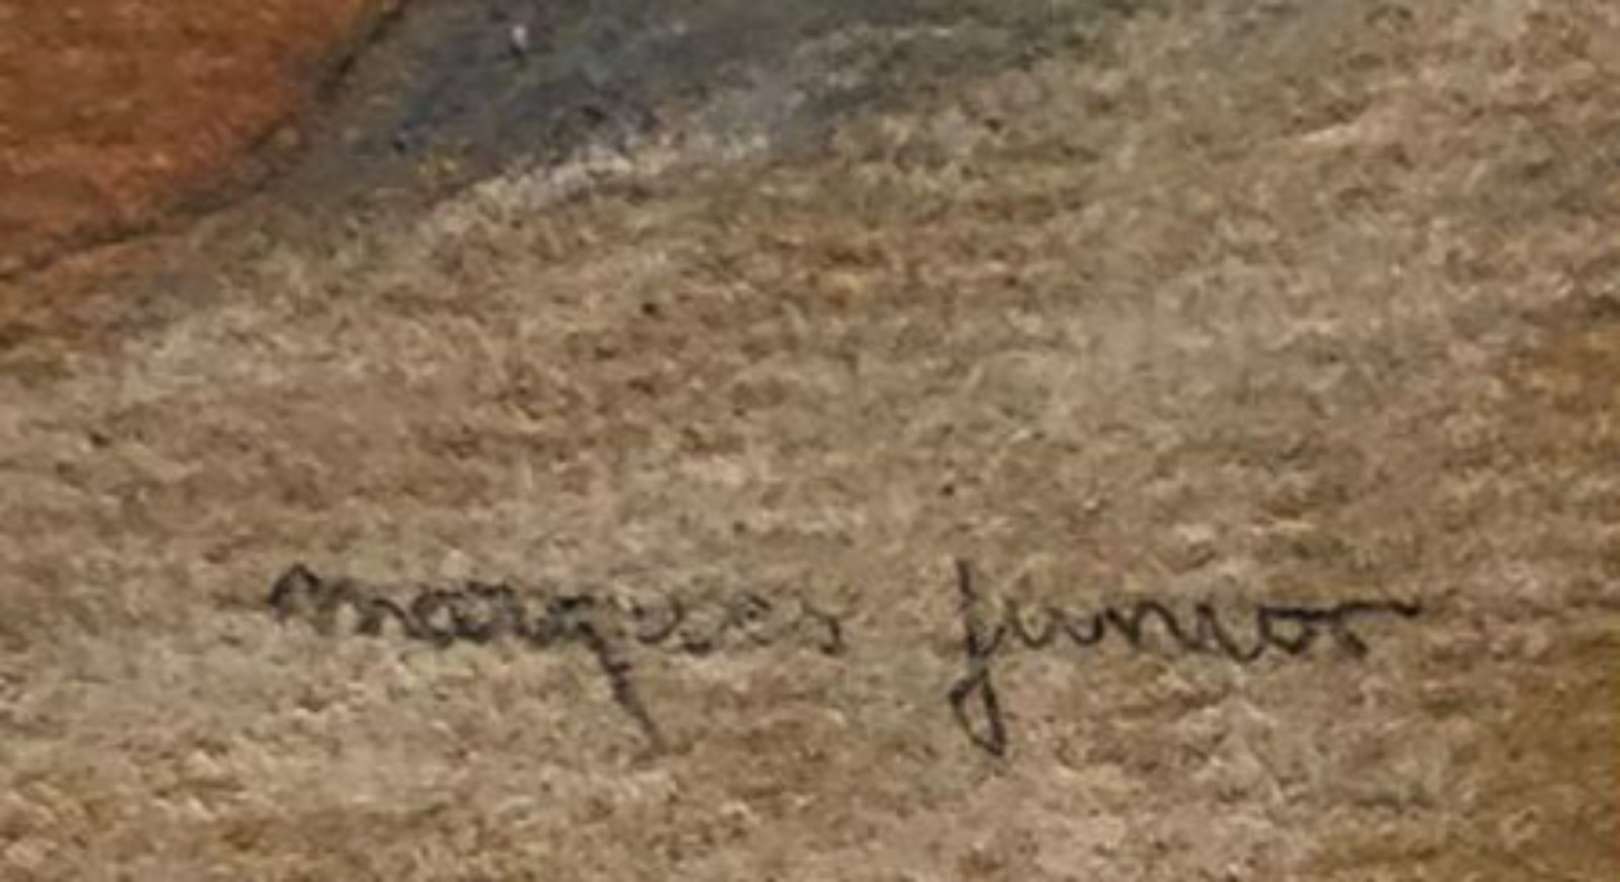 marques junior